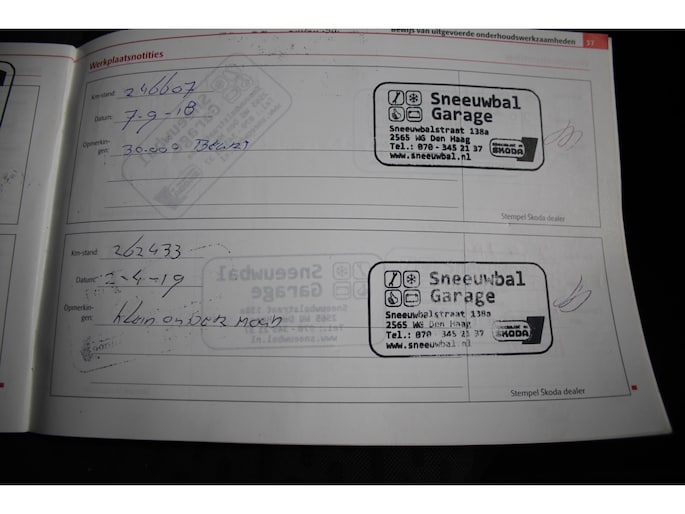 Bewijs van uitgevoerde onderhoudswerkzaamheden 37
Werkplaatsnotities
Km-stand: 246607
Datum: 7-9-18
Opmerkin-
gen: 30.000 Beurt
Sneeuwbal
Garage
Sneeuwbalstraat 138a
2565 WG Den Haag
Tel.: 070 - 345 21 37
www.sneeuwbal.nl
ŠKODA
Stempel Škoda dealer
Km-stand: 262433
Datum: 2-4-19
Opmerkin-
gen: Klein onderhoud
Sneeuwbal
Garage
Sneeuwbalstraat 138a
2565 WG Den Haag
Tel.: 070 345 21 37
www.sneeuwbal.nl
ŠKODA
Stempel Škoda dealer